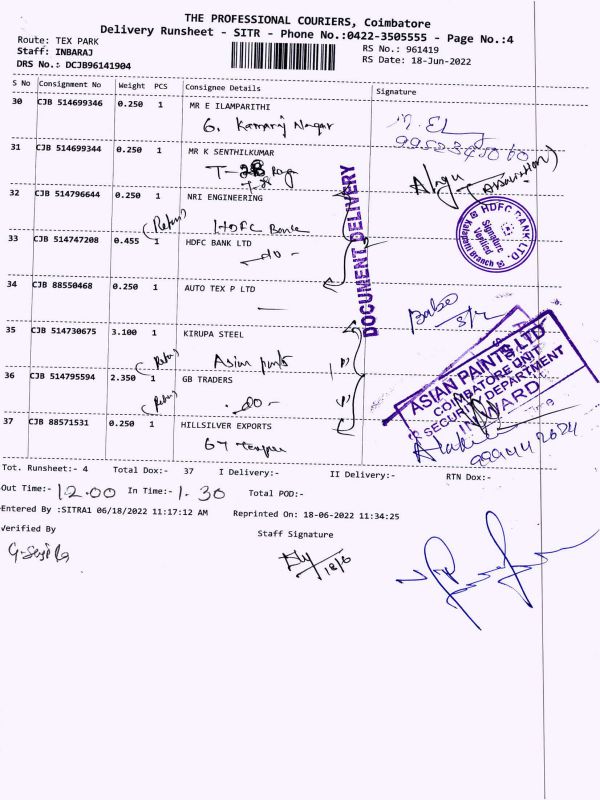 THE PROFESSIONAL COURIERS, Coimbatore
Delivery Runsheet - SITR - Phone No.:0422-3505555 - Page No.:4
Route: TEX PARK
RS No.: 961419
Staff: INBARAJ
RS Date: 18-Jun-2022
DRS No.: DCJB96141904
S No Consignment No Weight PCS Consignee Details Signature
30 CJB 514699346 0.250 1 MR E ILAMPARITHI
6. Kamaraj Nagar
31 CJB 514699344 0.250 1 MR K SENTHILKUMAR
32 CJB 514796644 0.250 1 NRI ENGINEERING
(Return) HDFC Bank
33 CJB 514747208 0.455 1 HDFC BANK LTD
- do -
34 CJB 88550468 0.250 1 AUTO TEX P LTD
35 CJB 514730675 3.100 1 KIRUPA STEEL
(Return) Asian paints
36 CJB 514795594 2.350 1 GB TRADERS
(Return) - do -
37 CJB 88571531 0.250 1 HILLSILVER EXPORTS
DOCUMENT DELIVERY
HDFC BANK LTD.
Signature
Verified
Branch
ASIAN PAINTS LTD
COIMBATORE UNIT
SECURITY DEPARTMENT
INWARD
Tot. Runsheet:- 4 Total Dox:- 37 I Delivery:- II Delivery:- RTN Dox:-
Out Time:- 12.00 In Time:- 1.30 Total POD:-
Entered By :SITRA1 06/18/2022 11:17:12 AM Reprinted On: 18-06-2022 11:34:25
Verified By
Staff Signature
18/6